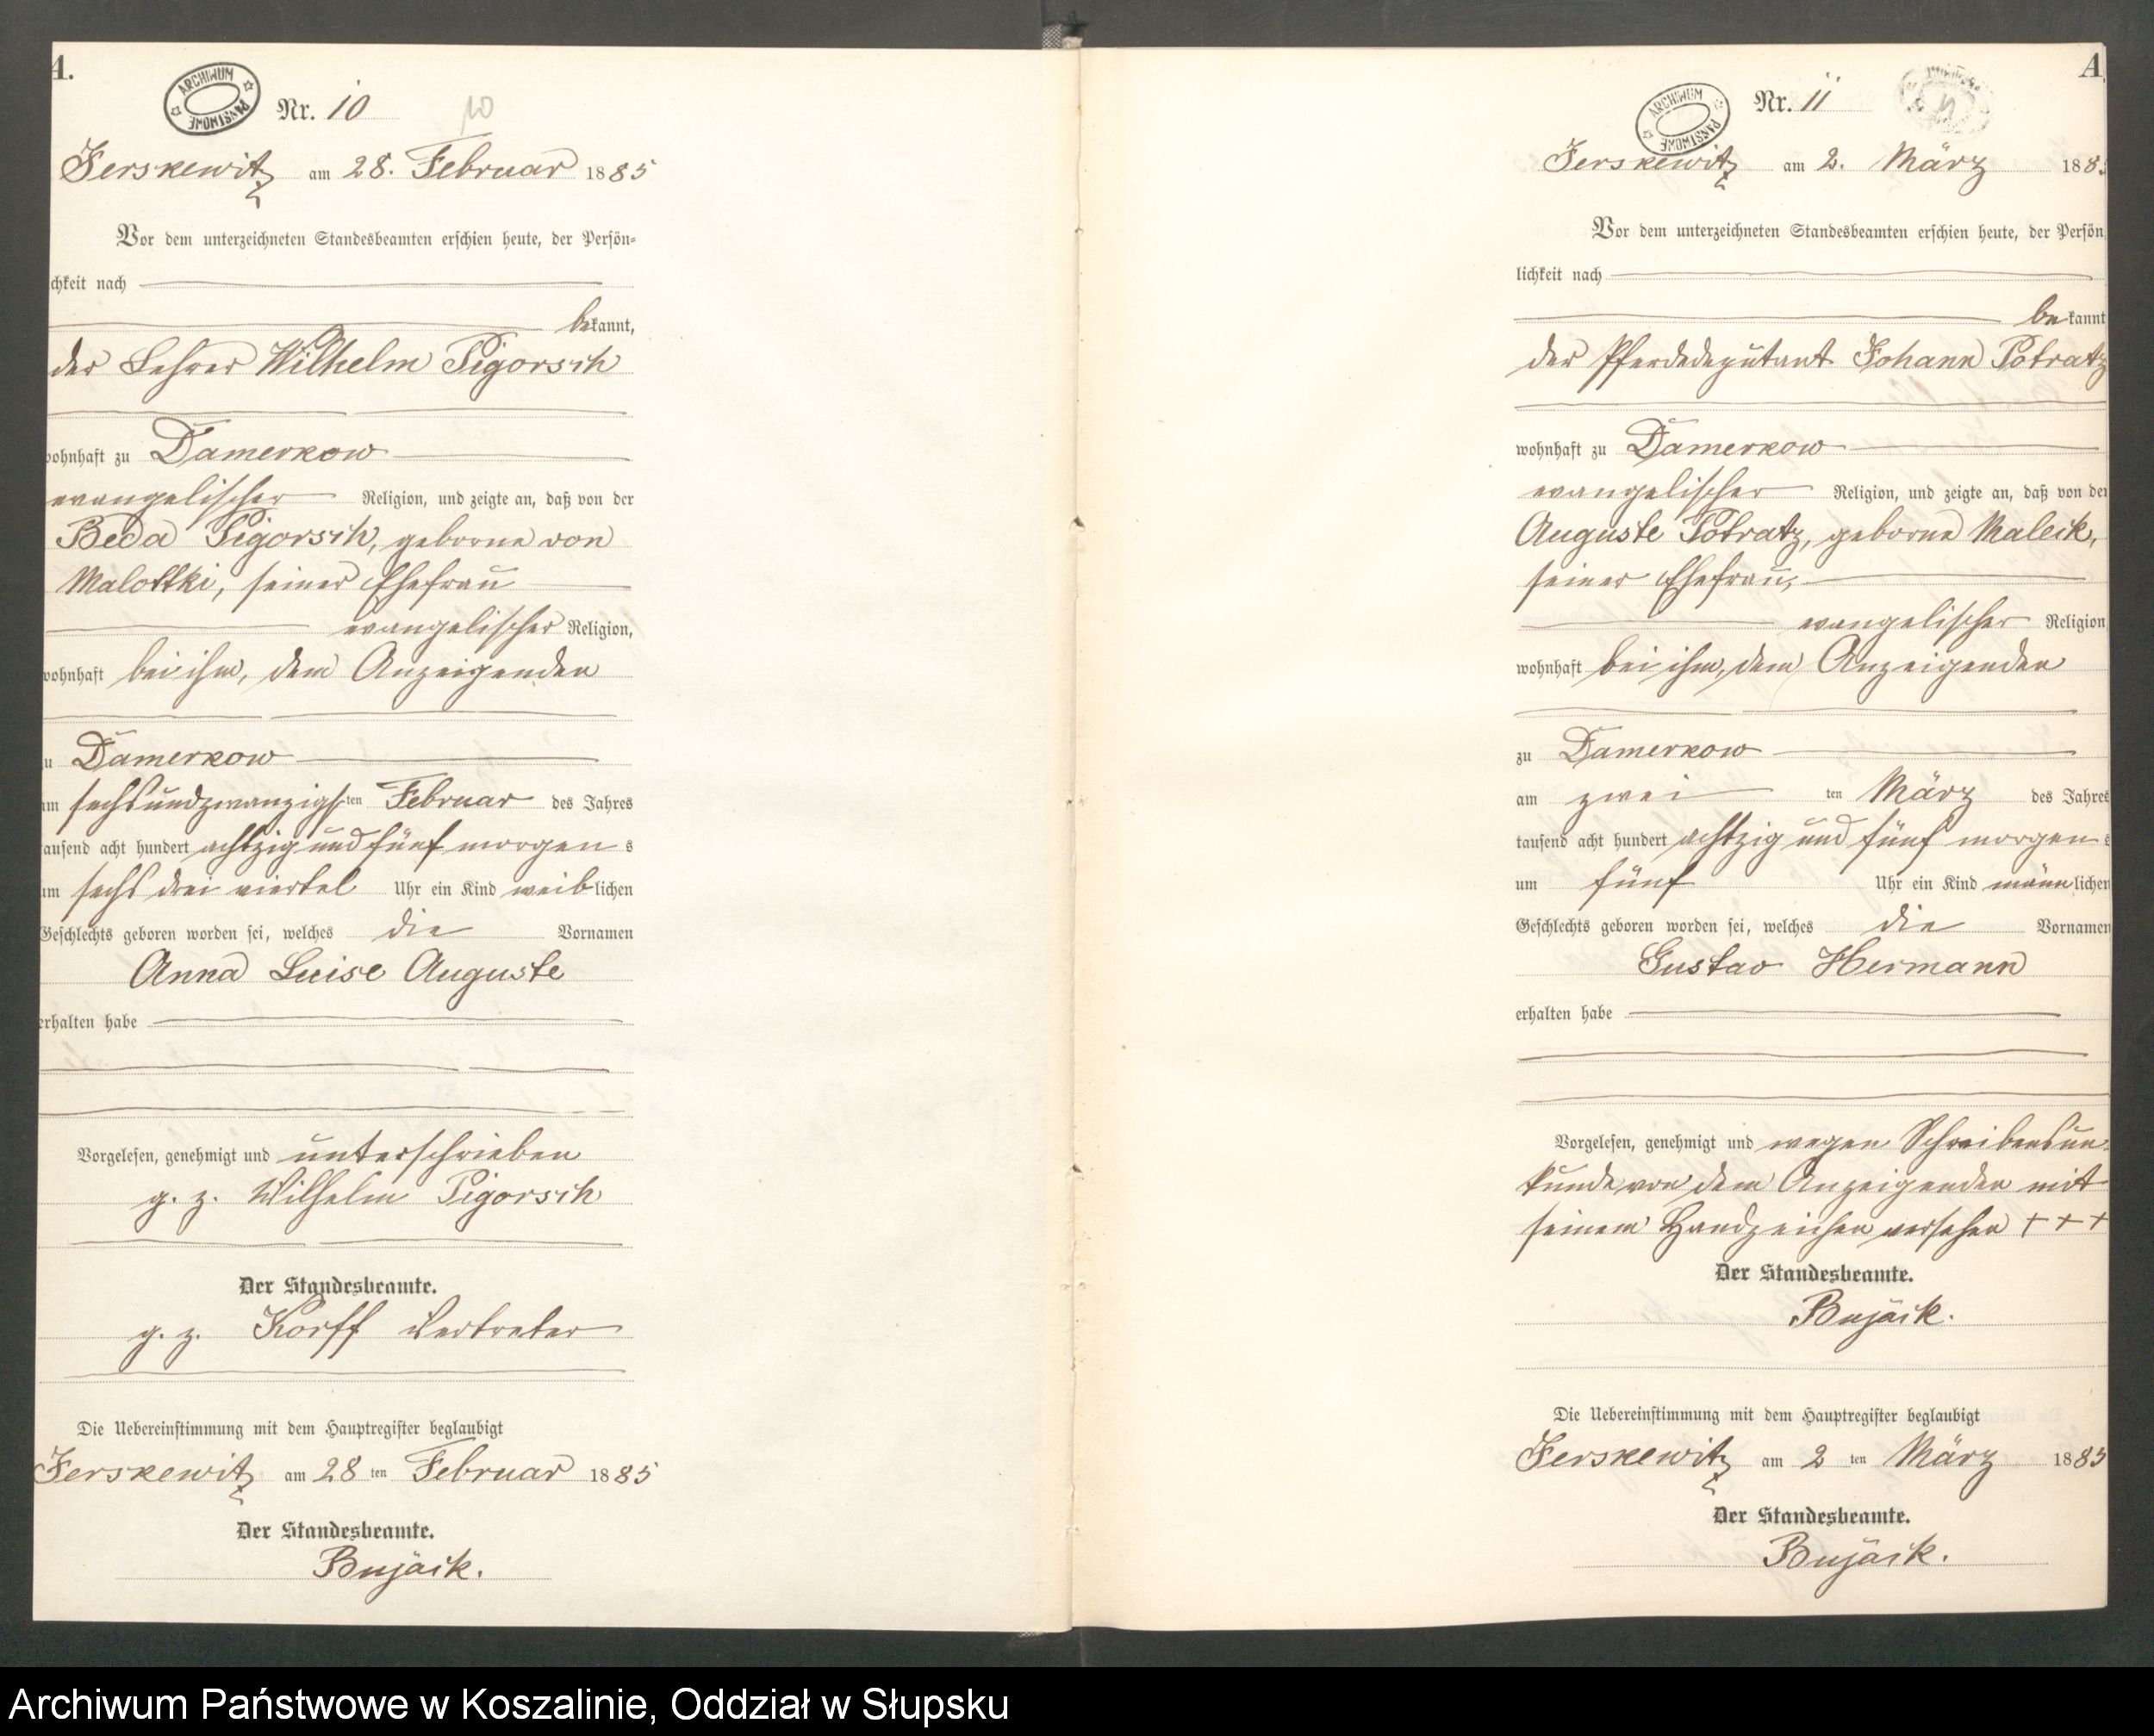 A.
ARCHIWUM PAŃSTWOWE
Nr. 10
10
Jerskewitz am 28. Februar 1885
Vor dem unterzeichneten Standesbeamten erschien heute, der Persön-
chkeit nach
bekannt,
der Lehrer Wilhelm Pigorsch
wohnhaft zu Damerkow
evangelischer Religion, und zeigte an, daß von der
Beda Pigorsch, geborne von
Malottki, seiner Ehefrau
evangelischer Religion,
wohnhaft bei ihm, dem Anzeigenden
zu Damerkow
am sechsundzwanzigsten Februar des Jahres
tausend acht hundert achtzig und fünf morgens
um sechs drei viertel Uhr ein Kind weiblichen
Geschlechts geboren worden sei, welches die Vornamen
Anna Luise Auguste
erhalten habe
Vorgelesen, genehmigt und unterschrieben
g. z. Wilhelm Pigorsch
Der Standesbeamte.
g. z. Korff Vertreter
Die Uebereinstimmung mit dem Hauptregister beglaubigt
Jerskewitz am 28 ten Februar 1885
Der Standesbeamte.
Bujack.
A
ARCHIWUM PAŃSTWOWE
Nr. 11
Jerskewitz am 2. März 188
Vor dem unterzeichneten Standesbeamten erschien heute, der Persön
lichkeit nach
bekannt
der Pferdedeputant Johann Potratz
wohnhaft zu Damerkow
evangelischer Religion, und zeigte an, daß von der
Auguste Potratz, geborne Maleck,
seiner Ehefrau,
evangelischer Religion
wohnhaft bei ihm, dem Anzeigenden
zu Damerkow
am zwei ten März des Jahres
tausend acht hundert achtzig und fünf morgens
um fünf Uhr ein Kind männlichen
Geschlechts geboren worden sei, welches die Vornamen
Gustav Hermann
erhalten habe
Vorgelesen, genehmigt und wegen Schreibensun-
kunde von dem Anzeigenden mit
seinem Handzeichen versehen + + +
Der Standesbeamte.
Bujack.
Die Uebereinstimmung mit dem Hauptregister beglaubigt
Jerskewitz am 2 ten März 1885
Der Standesbeamte.
Bujack.
Archiwum Państwowe w Koszalinie, Oddział w Słupsku